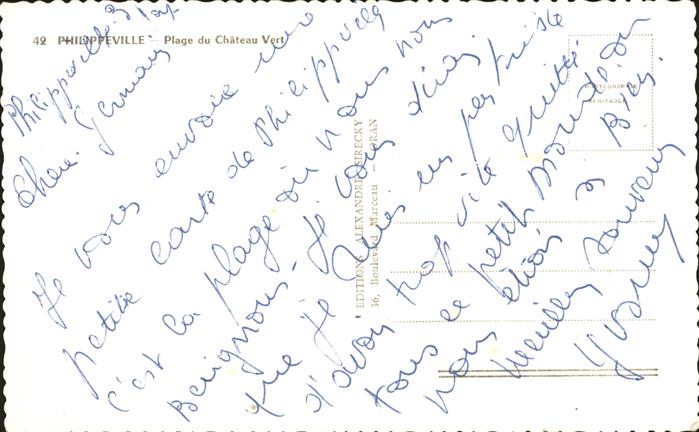 42 PHILIPPEVILLE — Plage du Château Vert
Philippeville
Chère Germaine
Je vous envoie une
petite carte de Philippeville
c'est la plage où nous nous
Baignons. Je vous dirai
que je suis un peu triste
d'avoir trop vite quitté
tous ce petit monde ou
nous étions si Bien.
meilleurs souvenirs
EDITIONS ALEXANDRE SIRECKY
36, Boulevard Marceau — ORAN
PHOTOGRAPHIE
VERITABLE